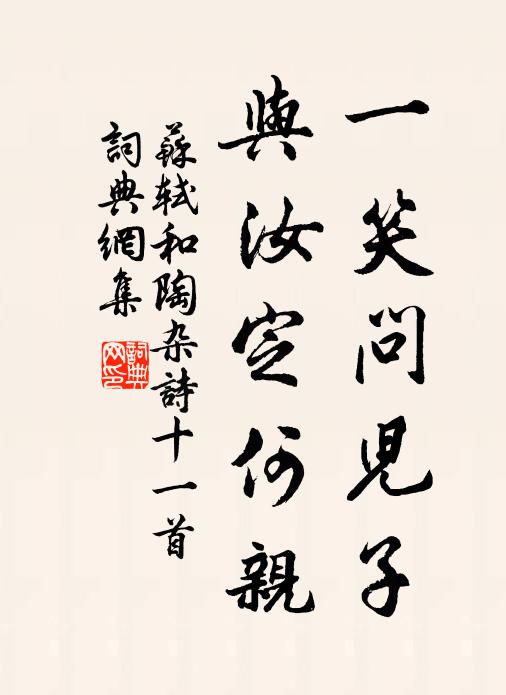 一笑問兒子
與汝定何親
蘇軾和陶杂詩十一首
詞典網集
詞典
网印